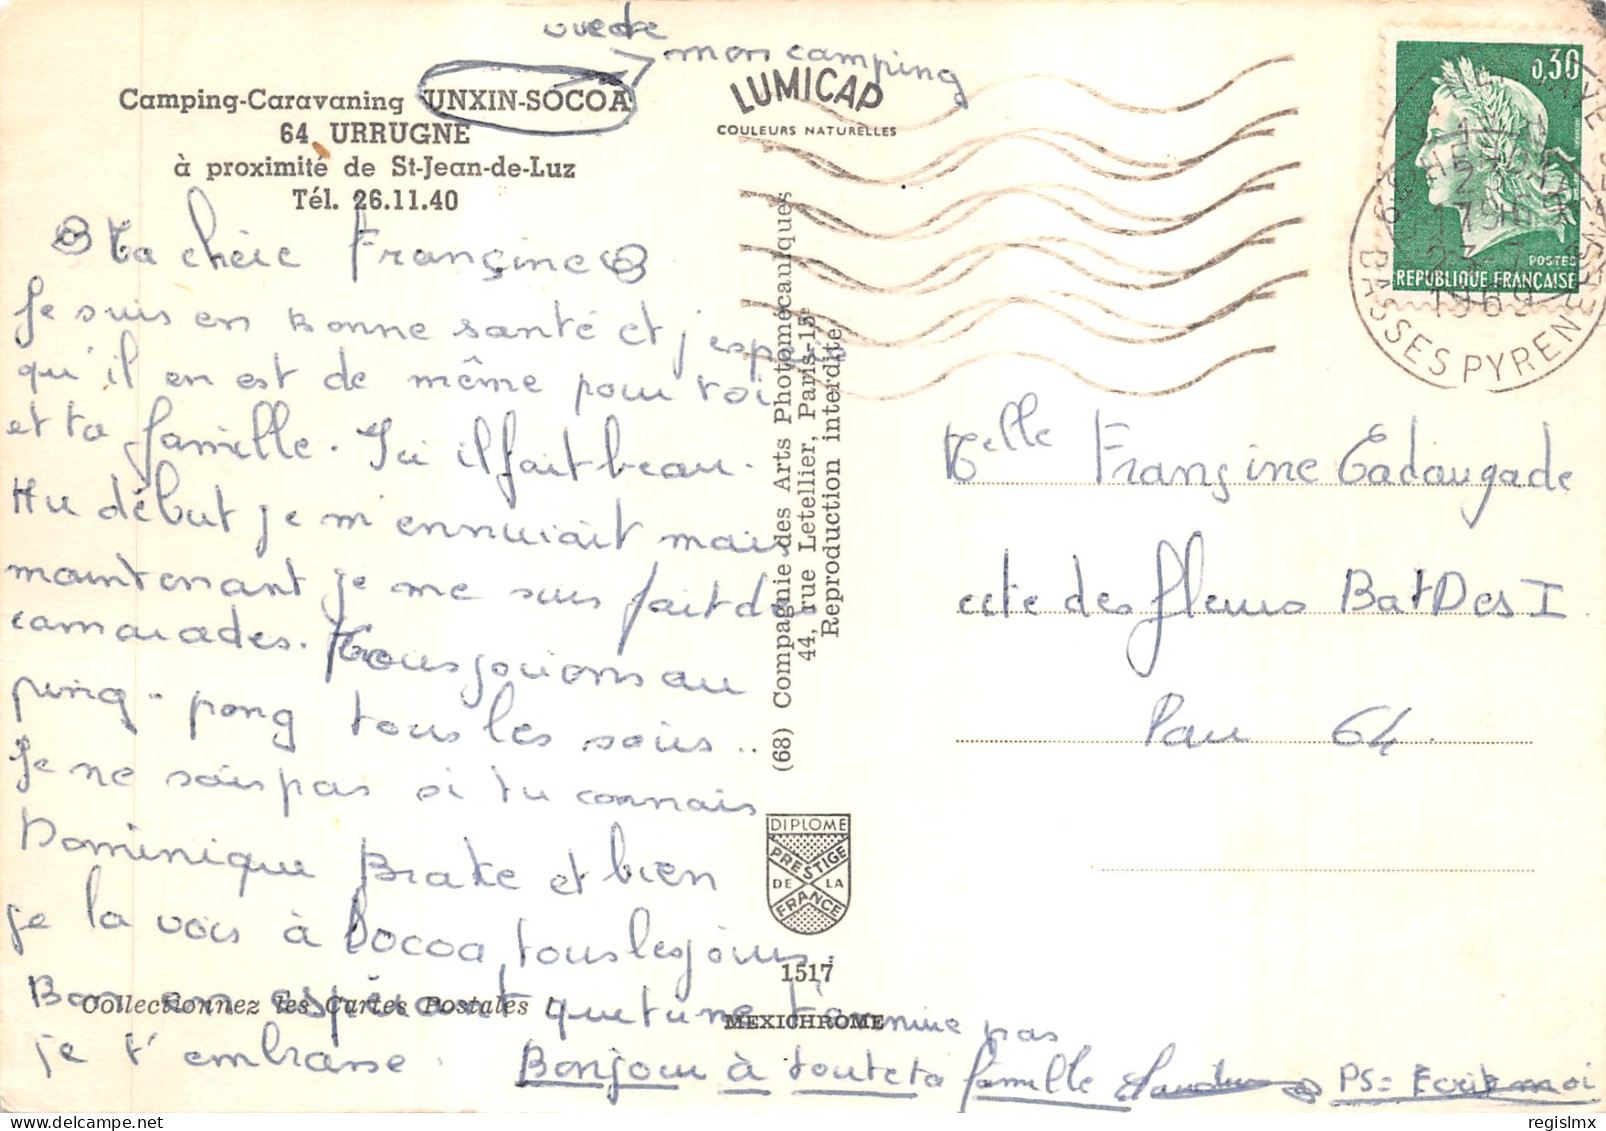 vue de
mon camping
Camping-Caravaning UNXIN-SOCOA
64 URRUGNE
à proximité de St-Jean-de-Luz
Tél. 26.11.40
LUMICAP
COULEURS NATURELLES
0,30
POSTES
REPUBLIQUE FRANÇAISE
17H
23-7
1969
BASSES PYRENEES
Ma chère Françine
Je suis en bonne santé et j'espère
qu'il en est de même pour toi
et ta famille. Ici il fait beau.
Au début je m'ennuiait mais
maintenant je me suis fait des
camarades. Nous jouions au
ping-pong tous les soirs..
Je ne sais pas si tu connais
Dominique Brake et bien
je la vois à Socoa tous les jours.
Bon en espérant que tu ne t'ennuie pas
je t'embrasse.
Bonjour à toute ta famille
PS= Ecris moi
Melle Françine Cadaugade
cité des fleurs Bat Des I
Pau 64
(68) Compagnie des Arts Photomécaniques
44, rue Letellier, Paris-15e
Reproduction interdite
DIPLOME
PRESTIGE
DE LA
FRANCE
1517
MEXICHROME
Collectionnez les Cartes Postales !
regislmx
delcampe.net